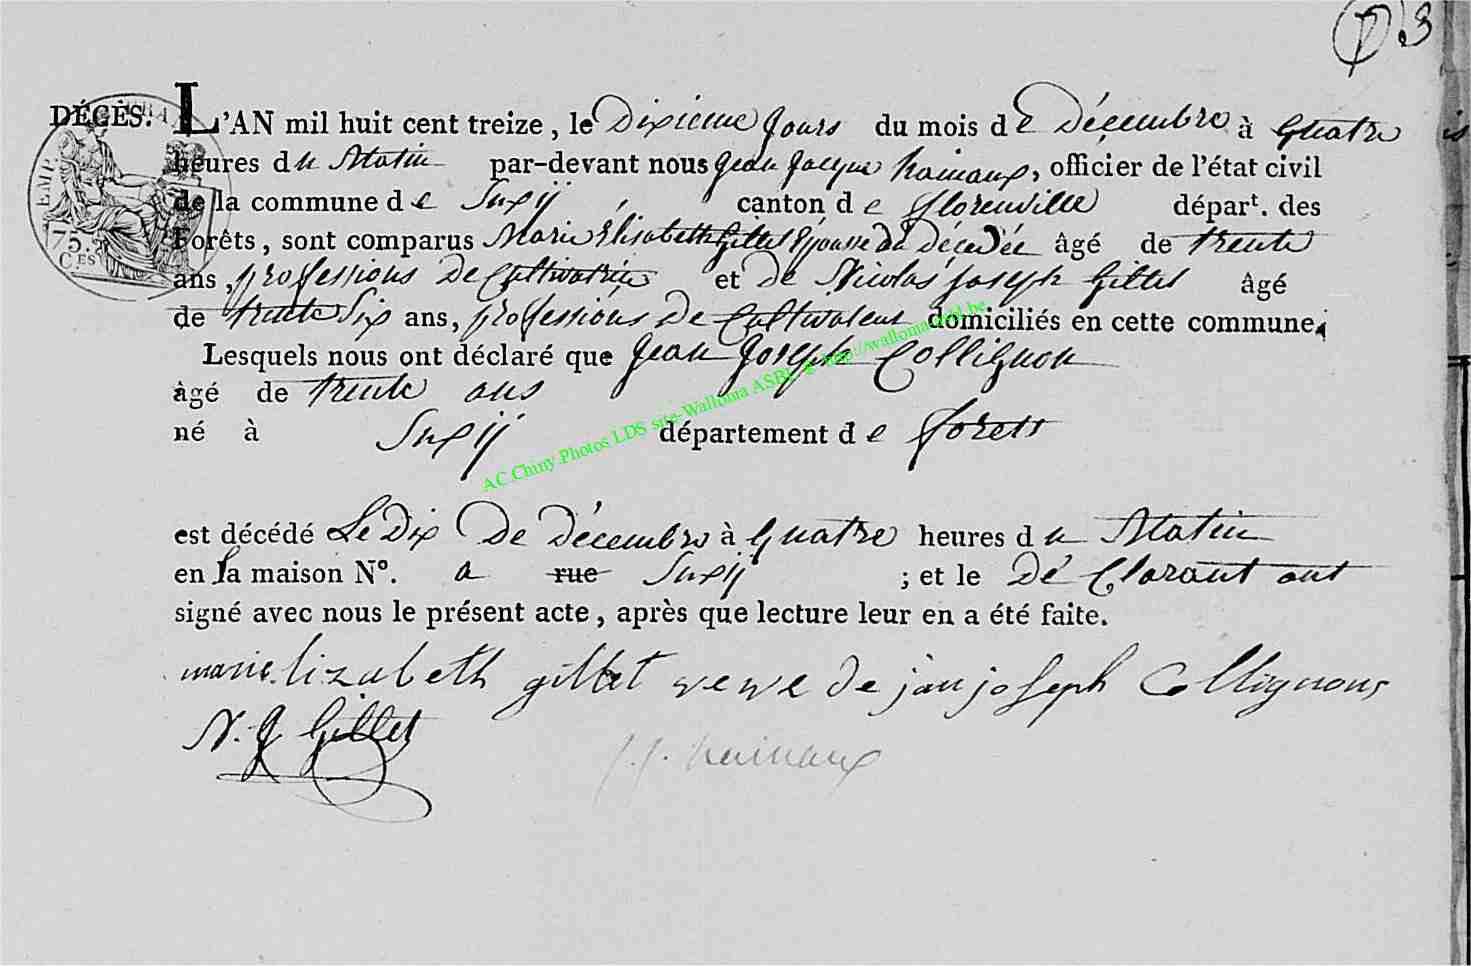 P 3
DÉCÈS. L'AN mil huit cent treize, le Dixieme Jours du mois de Décembre à quatre
heures du Matin par-devant nous Jean Jacque hainaux, officier de l'état civil
de la commune de Suxij canton de florenville départ. des
Forêts, sont comparus Marie Elisabeth Gillet Epousse du décedée âgé de trente
ans, professions De Cultivatrice et de Nicolas Joseph Gillet âgé
de trente Six ans, professions De Cultivateur domiciliés en cette commune.
Lesquels nous ont déclaré que Jean Joseph Collignon
âgé de trente ans
né à Suxij département de forets
est décédé Le Dix De Décembre à Quatre heures du Matin
en la maison N°. a rue Suxij ; et le Dé Clarant ont
signé avec nous le présent acte, après que lecture leur en a été faite.
marie.lizabeth gillet veve de jan joseph Collignons
N. J Gillet
J. J. hainaux
EMP.
75.
C.ES
AC Chiny Photos LDS site-Wallonia ASBL @ http://walloniaasbl.be